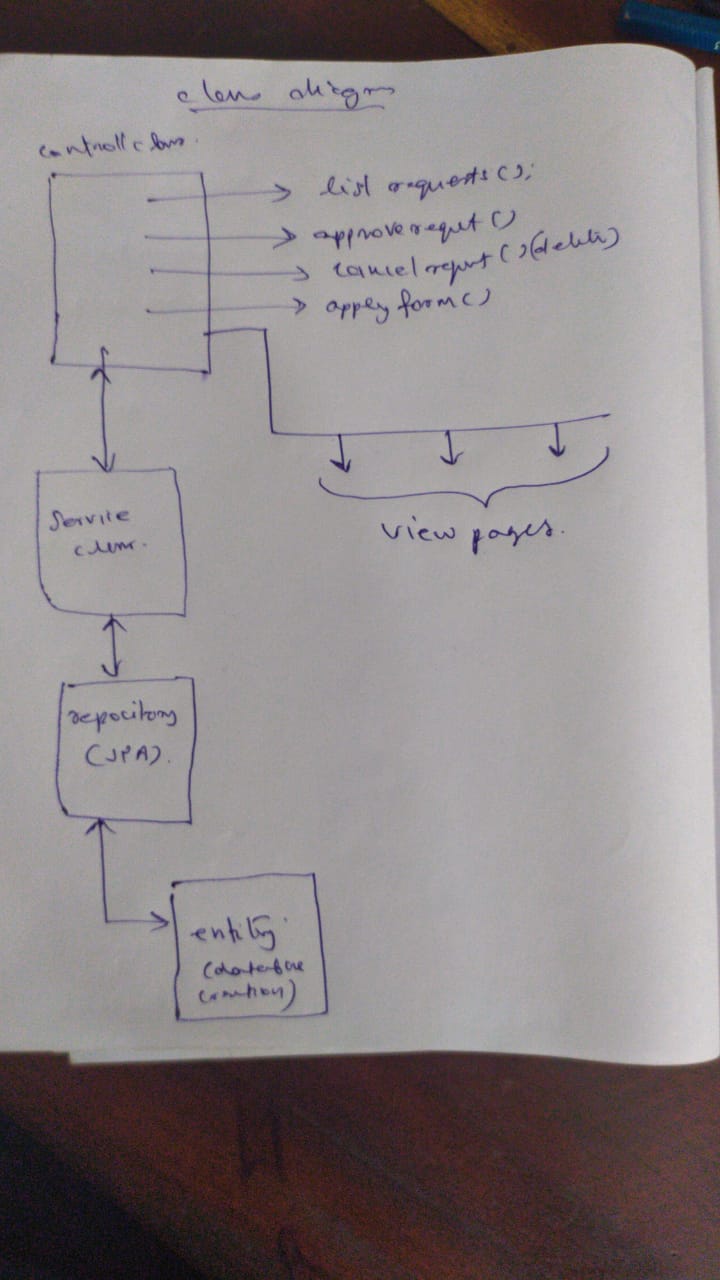 class diagram
controll class.
list requests();
approve request()
cancel request() (delete)
apply form()
view pages.
Service
class.
repository
(JPA).
entity
(database
creation)